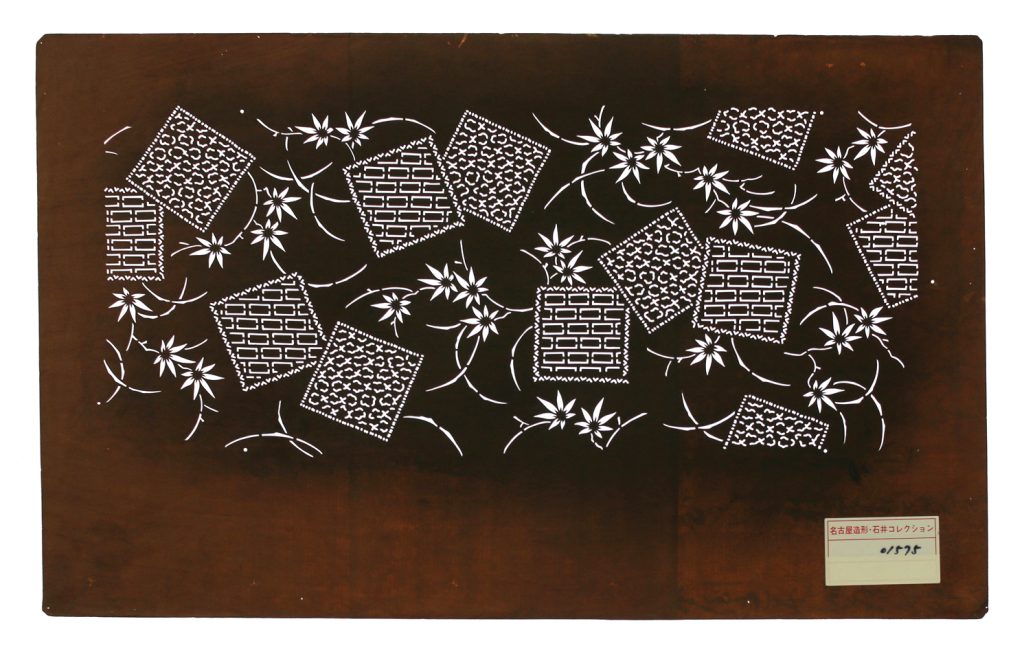 名古屋造形・石井コレクション
01575